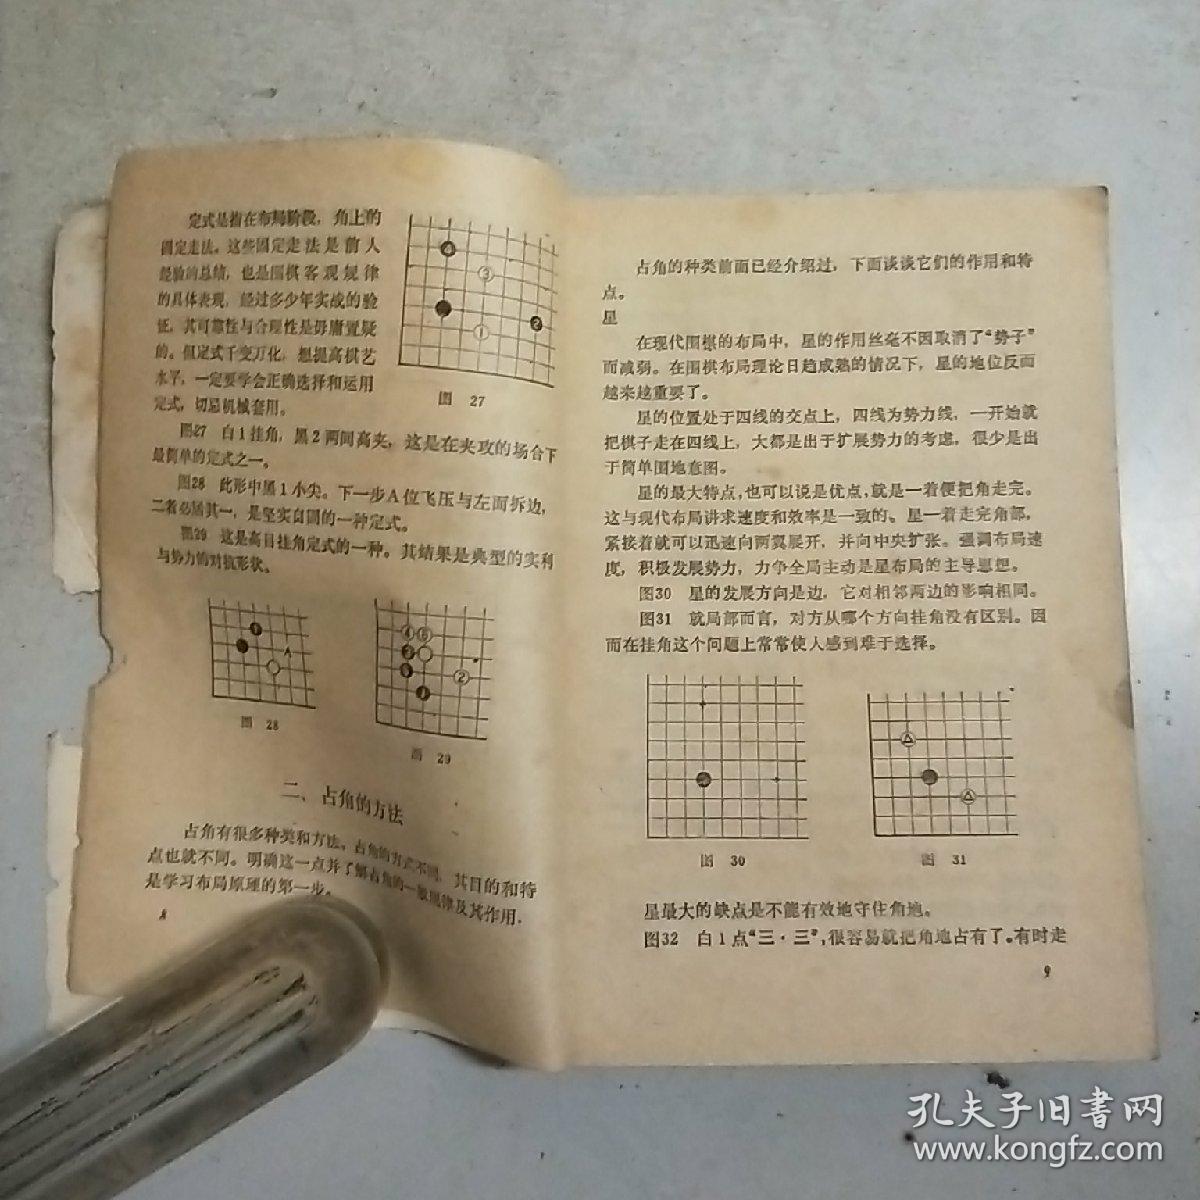 定式是指在布局阶段，角上的
固定走法。这些固定走法是前人
经验的总结，也是围棋客观规律
的具体表现，经过多少年实战的验
证，其可靠性与合理性是毋庸置疑
的。但定式千变万化，想提高棋艺
水平，一定要学会正确选择和运用
定式，切忌机械套用。
图 27
图27 白1挂角，黑2两间高夹，这是在夹攻的场合下
最简单的定式之一。
图28 此形中黑1小尖。下一步A位飞压与左面拆边，
二者必居其一，是坚实自固的一种定式。
图29 这是高目挂角定式的一种。其结果是典型的实利
与势力的对抗形状。
图 28
图 29
二、占角的方法
占角有很多种类和方法。占角的方式不同，其目的和特
点也就不同。明确这一点并了解占角的一般规律及其作用，
是学习布局原理的第一步。
8
占角的种类前面已经介绍过，下面谈谈它们的作用和特
点。
星
在现代围棋的布局中，星的作用丝毫不因取消了“势子”
而减弱。在围棋布局理论日趋成熟的情况下，星的地位反而
越来越重要了。
星的位置处于四线的交点上，四线为势力线，一开始就
把棋子走在四线上，大都是出于扩展势力的考虑，很少是出
于简单围地意图。
星的最大特点，也可以说是优点，就是一着便把角走完。
这与现代布局讲求速度和效率是一致的。星一着走完角部，
紧接着就可以迅速向两翼展开，并向中央扩张。强调布局速
度，积极发展势力，力争全局主动是星布局的主导思想。
图30 星的发展方向是边，它对相邻两边的影响相同。
图31 就局部而言，对方从哪个方向挂角没有区别。因
而在挂角这个问题上常常使人感到难于选择。
图 30
图 31
星最大的缺点是不能有效地守住角地。
图32 白1点“三·三”，很容易就把角地占有了。有时走
9
孔夫子旧书网
www.kongfz.com